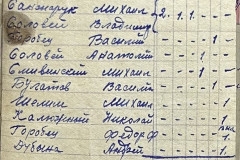 Сакандрук Михаил 2. 1. 1. - - 1
Соловей Владимир - - - -
Горобец Василий - - - - 1
Соловей Анатолий - - - - 1 -
Сливинский Михаил - - - - 1 -
Булатов Василий - - - - 1
Шелин Михаил - - - - - 1
Калюжный Николай - - - - 1
Горобец Федор Ф - - - - 1
Дубина Андрей - - - - - 1.